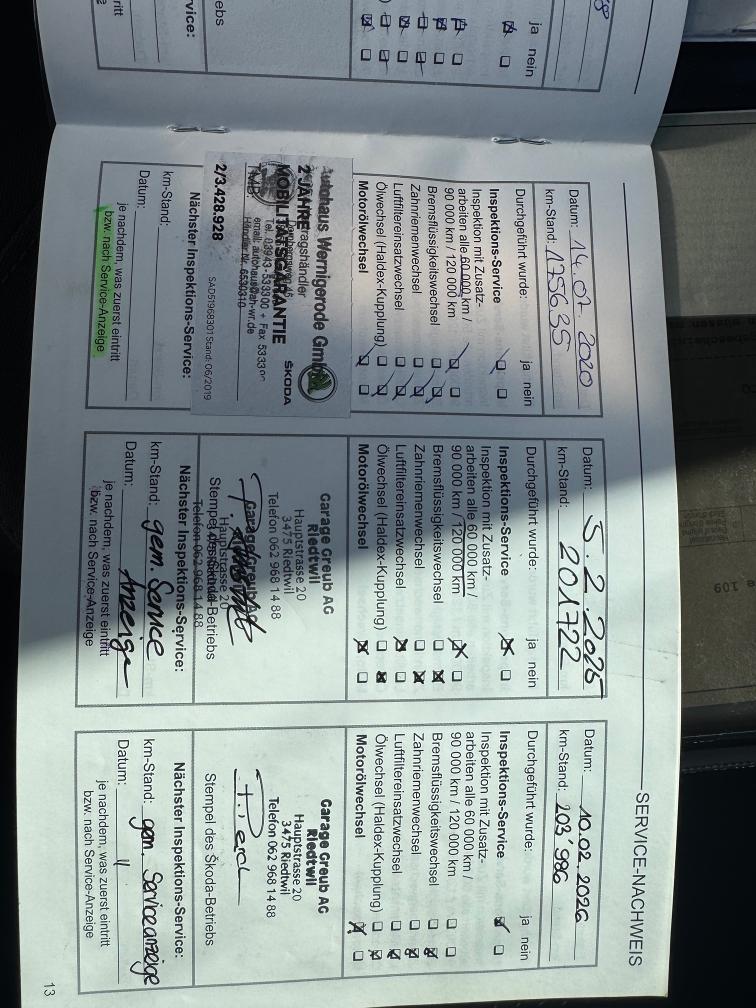 SERVICE-NACHWEIS
Datum: 14.07.2020
km-Stand: 175635
Durchgeführt wurde: ja nein
Inspektions-Service
Inspektion mit Zusatz-
arbeiten alle 60 000 km /
90 000 km / 120 000 km
Bremsflüssigkeitswechsel
Zahnriemenwechsel
Luftfiltereinsatzwechsel
Ölwechsel (Haldex-Kupplung)
Motorölwechsel
Autohaus Wernigerode GmbH
2 JAHRE
MOBILITÄTSGARANTIE
ŠKODA
Tel. 03943- 533300 + Fax
SAD51968301 Stand: 06/2019
2/3.428.928
Nächster Inspektions-Service:
km-Stand:
Datum:
je nachdem, was zuerst eintritt
bzw. nach Service-Anzeige
Datum: 5.2.2025
km-Stand: 201722
Durchgeführt wurde: ja nein
Inspektions-Service
Inspektion mit Zusatz-
arbeiten alle 60 000 km /
90 000 km / 120 000 km
Bremsflüssigkeitswechsel
Zahnriemenwechsel
Luftfiltereinsatzwechsel
Ölwechsel (Haldex-Kupplung)
Motorölwechsel
Garage Greub AG
Riedtwil
Hauptstrasse 20
3475 Riedtwil
Telefon 062 968 14 88
Garage Greub AG
Hauptstrasse 20
Stempel des Škoda-Betriebs
Telefon 062 968 14 88
Nächster Inspektions-Service:
km-Stand: gem. Service
Datum: Anzeige
je nachdem, was zuerst eintritt
bzw. nach Service-Anzeige
Datum: 10.02.2026
km-Stand: 203'986
Durchgeführt wurde: ja nein
Inspektions-Service
Inspektion mit Zusatz-
arbeiten alle 60 000 km /
90 000 km / 120 000 km
Bremsflüssigkeitswechsel
Zahnriemenwechsel
Luftfiltereinsatzwechsel
Ölwechsel (Haldex-Kupplung)
Motorölwechsel
Garage Greub AG
Riedtwil
Hauptstrasse 20
3475 Riedtwil
Telefon 062 968 14 88
Stempel des Škoda-Betriebs
Nächster Inspektions-Service:
km-Stand: gem. Serviceanzeige
Datum: "
je nachdem, was zuerst eintritt
bzw. nach Service-Anzeige
13